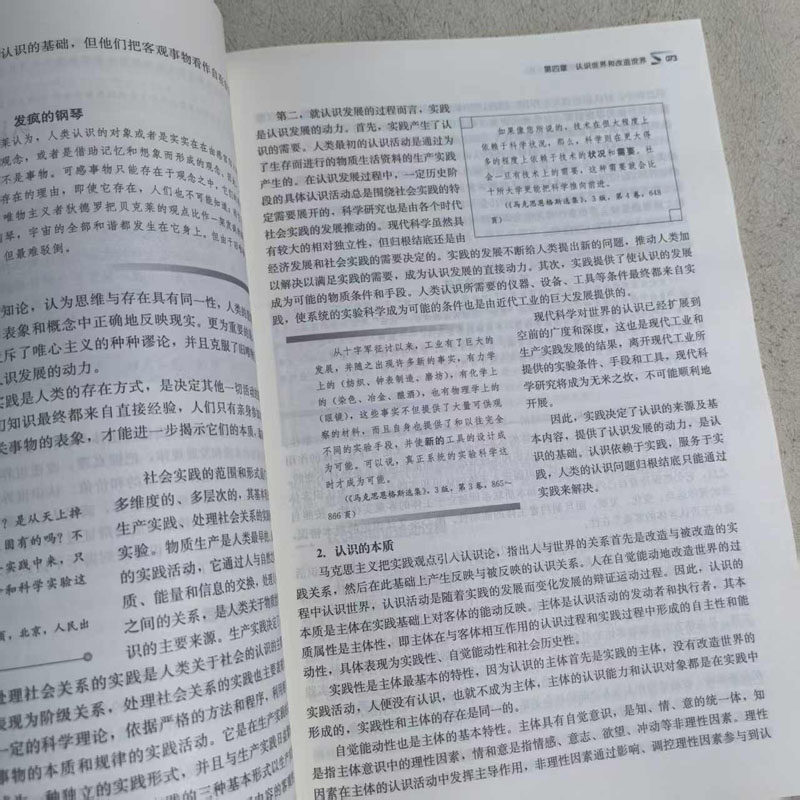 认识的基础，但他们把客观事物看作自在
发疯的钢琴
莱认为，人类认识的对象或者是实实在在由感官
观念，或者是借助记忆和想象而形成的观念，
不是事物。可感事物只能存在于观念之中，它们
存在的理由，即使它存在，人们也不可能知道
唯物主义者狄德罗把贝克莱的观点比作一架发疯的
钢琴，宇宙的全部和谐都发生在它身上。但由于
但最难驳倒。
知论，认为思维与存在具有同一性，人类的
表象和概念中正确地反映现实。更为重要的
驳斥了唯心主义的种种谬论，并且克服了旧唯物
认识发展的动力。
实践是人类的存在方式，是决定其他一切活动的
切知识最终都来自直接经验，人们只有亲身参
关事物的表象，才能进一步揭示它们的本质，
社会实践的范围和形式是
多维度的、多层次的，其基本
生产实践、处理社会关系的实
实验。物质生产是人类最早也
的实践活动，它通过人与自然
质、能量和信息的交换，处理人
之间的关系，是人类关于物质
识的主要来源。生产实践决定
？是从天上掉
固有的吗？不
实践中来，只
和科学实验这
页，北京，人民出
处理社会关系的实践是人类关于社会的认识的主
表现为阶级关系，处理社会关系的实践也主要表
一定的科学理论，依据严格的方法和程序，利用
事物的本质和规律的实践活动。它是在生产实践
成为一种独立的实践形式，并且与生产实践
实践的三种基本形式以生产
第四章 认识世界和改造世界 073
第二，就认识发展的过程而言，实践
是认识发展的动力。首先，实践产生了认
识的需要。人类最初的认识活动是通过为
了生存而进行的物质生活资料的生产实践
产生的。在认识发展过程中，一定历史阶
段的具体认识活动总是围绕社会实践的特
定需要展开的，科学研究也是由各个时代
社会实践的发展推动的。现代科学虽然具
有较大的相对独立性，但归根结底还是由
如果像您所说的，技术在很大程度上
依赖于科学状况，那么，科学则在更大得
多的程度上依赖于技术的状况和需要。社
会一旦有技术上的需要，这种需要就会比
十所大学更能把科学推向前进。
（《马克思恩格斯选集》，3版，第4卷，648
页）
经济发展和社会实践的需要决定的。实践的发展不断给人类提出新的问题，推动人类加
以解决以满足实践的需要，成为认识发展的直接动力。其次，实践提供了使认识的发展
成为可能的物质条件和手段。人类认识所需要的仪器、设备、工具等条件最终都来自实
践，使系统的实验科学成为可能的条件也是由近代工业的巨大发展提供的。
从十字军征讨以来，工业有了巨大的
发展，并随之出现许多新的事实，有力学
上的（纺织、钟表制造、磨坊），有化学上
的（染色、冶金、酿酒），也有物理学上的
（眼镜），这些事实不但提供了大量可供观
察的材料，而且自身也提供了和以往完全
不同的实验手段，并使新的工具的设计成
为可能。可以说，真正系统的实验科学这
时才成为可能。
（《马克思恩格斯选集》，3版，第3卷，865～
866页）
现代科学对世界的认识已经扩展到
空前的广度和深度，这也是现代工业和
生产实践发展的结果，离开现代工业所
提供的实验条件、手段和工具，现代科
学研究将成为无米之炊，不可能顺利地
开展。
因此，实践决定了认识的来源及基
本内容，提供了认识发展的动力，是认
识的基础。认识依赖于实践，服务于实
践，人类的认识问题归根结底只能通过
实践来解决。
2. 认识的本质
马克思主义把实践观点引入认识论，指出人与世界的关系首先是改造与被改造的实
践关系，然后在此基础上产生反映与被反映的认识关系。人在自觉能动地改造世界的过
程中认识世界，认识活动是随着实践的发展而变化发展的辩证运动过程。因此，认识的
本质是主体在实践基础上对客体的能动反映。主体是认识活动的发动者和执行者，其本
质属性是主体性，即主体在与客体相互作用的认识过程和实践过程中形成的自主性和能
动性，具体表现为实践性、自觉能动性和社会历史性。
实践性是主体最基本的特性，因为认识的主体首先是实践的主体，没有改造世界的
实践活动，人便没有认识，也就不成为主体，主体的认识能力和认识对象都是在实践中
形成的，实践性和主体的存在是同一的。
自觉能动性也是主体的基本特性。主体具有自觉意识，是知、情、意的统一体，知
是指主体意识中的理性因素，情和意是指情感、意志、欲望、冲动等非理性因素。理性
因素在主体的认识活动中发挥主导作用，非理性因素通过影响、调控理性因素参与到认